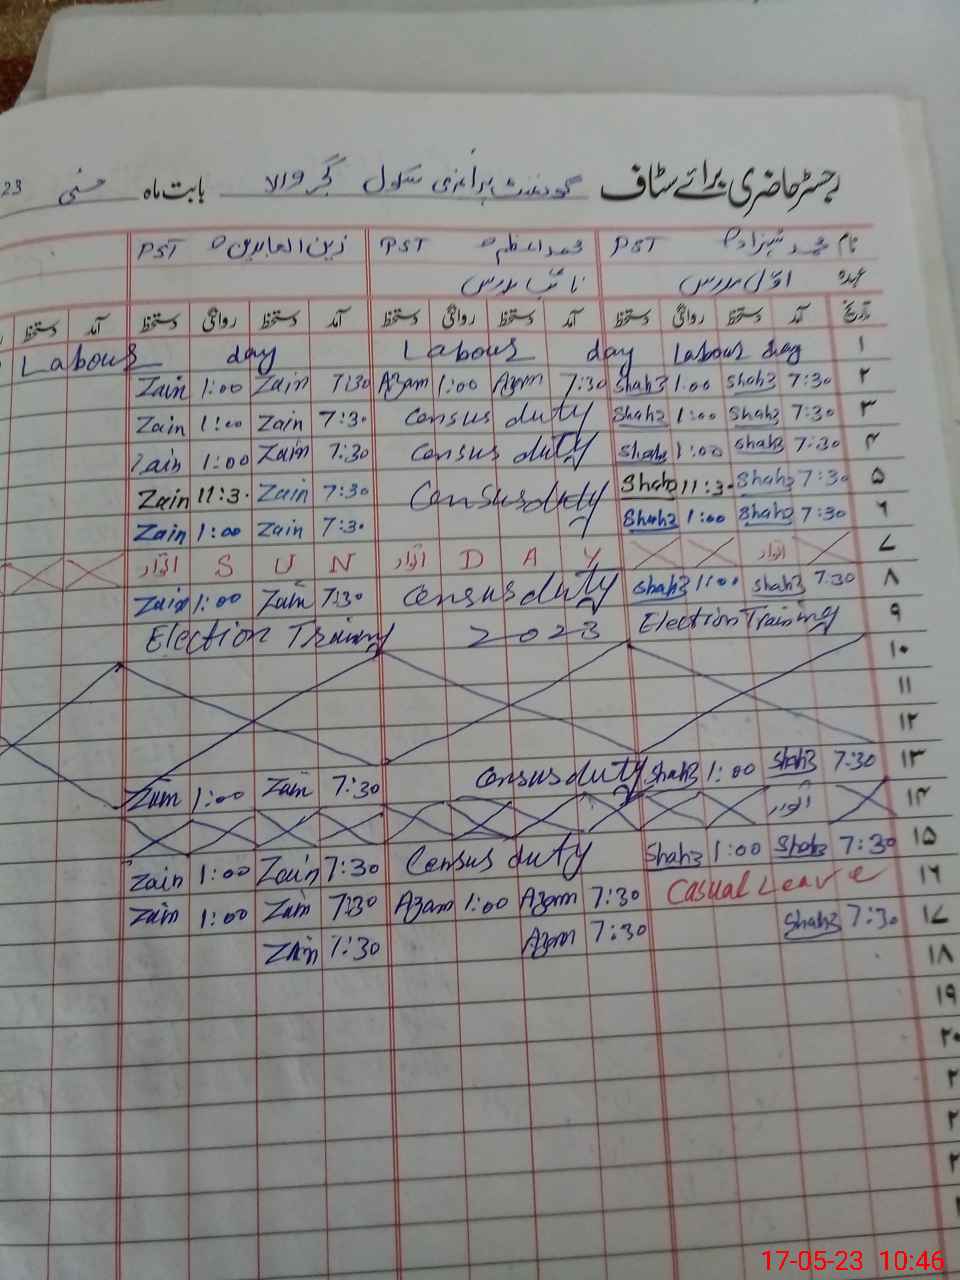 رجسٹر حاضری برائے سٹاف گورنمنٹ پرائمری سکول گجر والا بابت ماہ مئی 23
نام محمد شہزاد PST محمد اعظم PST زین العابدین PST
عہدہ اوّل مدرس نائب مدرس
تاریخ آمد دستخط روانگی دستخط آمد دستخط روانگی دستخط آمد دستخط روانگی دستخط آمد دستخط
Labour day Labour day Labour day ۱
Zain 1:00 Zain 7:30 Azam 1:00 Azam 7:30 Shahz 1:00 Shahz 7:30 ۲
Zain 1:00 Zain 7:30 Census duty Shahz 1:00 Shahz 7:30 ۳
Zain 1:00 Zain 7:30 Census duty Shahz 1:00 Shahz 7:30 ۴
Zain 11:30 Zain 7:30 Census duty Shahz 11:30 Shahz 7:30 ۵
Zain 1:00 Zain 7:30 Shahz 1:00 Shahz 7:30 ۶
اتوار S U N اتوار D A Y اتوار ۷
Zain 1:00 Zain 7:30 Census duty Shahz 1:00 Shahz 7:30 ۸
Election Training 2023 Election Training ۹
۱۰
۱۱
۱۲
Zain 1:00 Zain 7:30 Census duty Shahz 1:00 Shahz 7:30 ۱۳
اتوار ۱۴
Zain 1:00 Zain 7:30 Census duty Shahz 1:00 Shahz 7:30 ۱۵
Zain 1:00 Zain 7:30 Azam 1:00 Azam 7:30 Casual Leave ۱۶
Zain 7:30 Azam 7:30 Shahz 7:30 ۱۷
۱۸
۱۹
۲۰
17-05-23 10:46